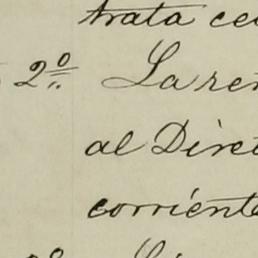 trata ce
2º La ren
al Direc
corriente